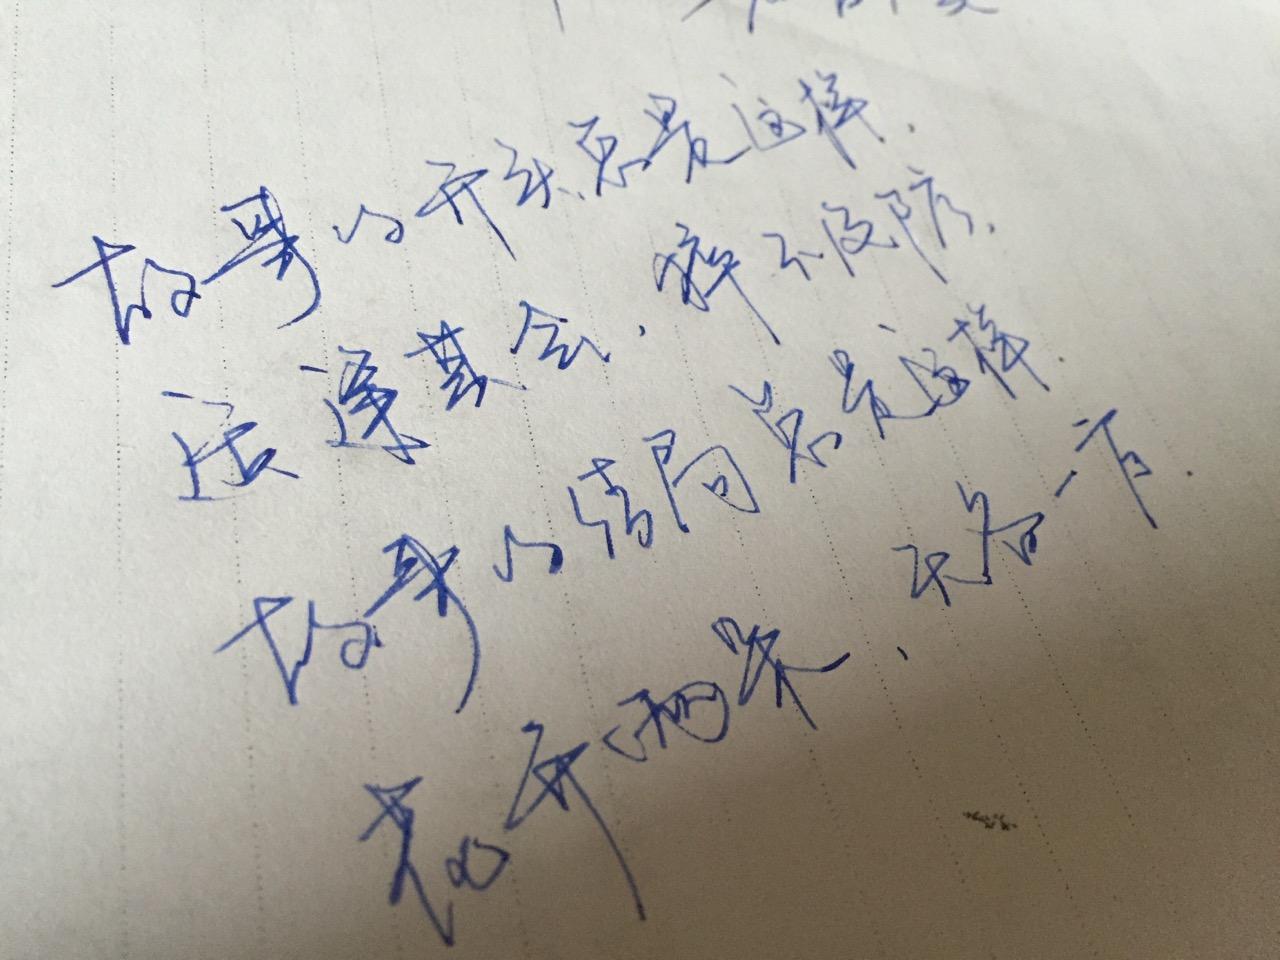 故事的开头总是这样.
适逢其会,猝不及防.
故事的结局总是这样.
花开两朵,天各一方.